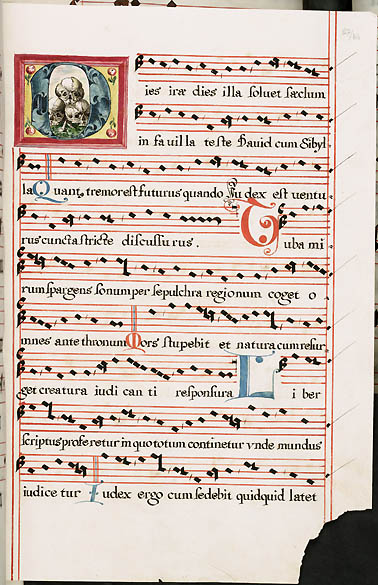 Dies iræ dies illa soluet sæclum
in fauilla teste Dauid cum Sibyl
la Quant, tremor est futurus quando Judex est uentu
rus cuncta stricte discussurus. Tuba mi
rum spargens sonum per sepulchra regionum coget o
mnes ante thronum Mors stupebit et natura cum resur
get creatura iudi can ti responsura Liber
scriptus proferetur in quo totum continetur vnde mundus
iudice tur Iudex ergo cum sedebit quidquid latet